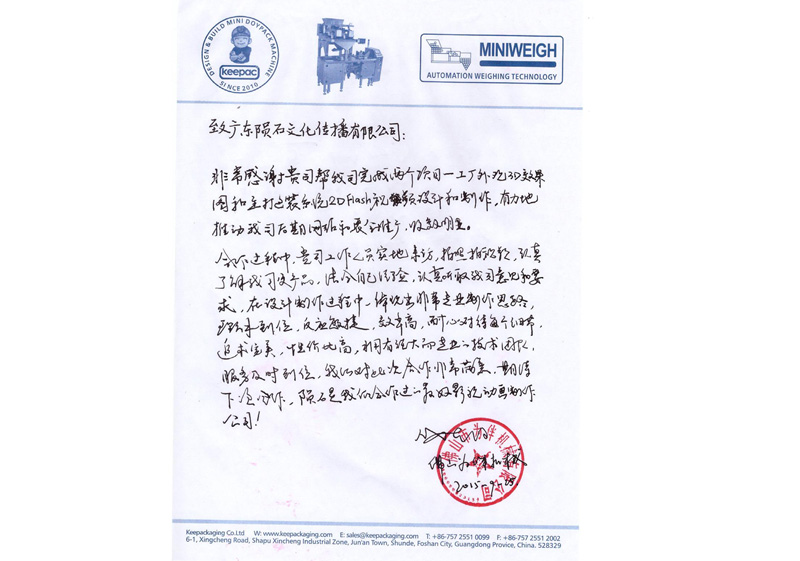 DESIGN & BUILD MINI DOYPACK MACHINE
keepac
SINCE 2010
MINIWEIGH
AUTOMATION WEIGHING TECHNOLOGY
致广东陨石文化传播有限公司:
非常感谢贵司帮我司完成两个项目—工厂外观3D效果
图和主打包装系统2D Flash视频设计和制作,有力地
推动我司后期网络和展会推广,收效明显。
合作过程中,贵司工作人员实地来访,拍照拍视频,认真
了解我司及产品,结合自己经验,认真听取我司意思和要
求,在设计制作过程中,体现出非常专业制作思路,
到位,反应敏捷,效率高,耐心对待每个细节,
追求完美,性价比高,拥有强大而专业的技术团队,
服务及时到位,我们对此次合作非常满意,期待
下次合作,陨石是我们合作过的最好影视动画制作
公司!
佛山市为伴机械有限公司
2015-9-25
Keepackaging Co.Ltd W: www.keepackaging.com E: sales@keepackaging.com T: +86-757 2551 0099 F: +86-757 2551 2002
6-1, Xingcheng Road, Shapu Xincheng Industrial Zone, Jun'an Town, Shunde, Foshan City, Guangdong Provice, China. 528329